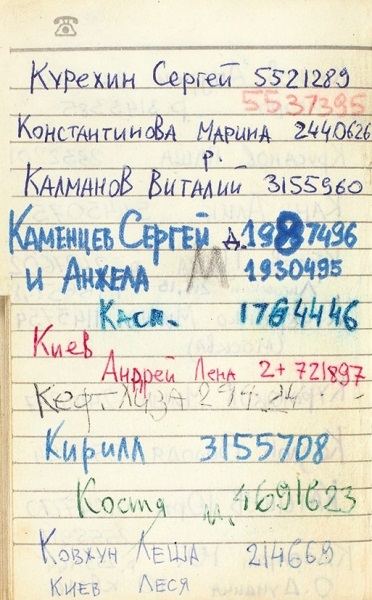 Курехин Сергей 5521289
5537395
Константинова Марина 2440626
р.
Калманов Виталий 3155960
Каменцев Сергей д. 1987496
и Анжела М 1930495
Касп. 1764446
Киев
Андрей Лена 2+721897
Кирилл 3155708
Костя м. 4691623
Ковхун Леша 214669
Киев Леся